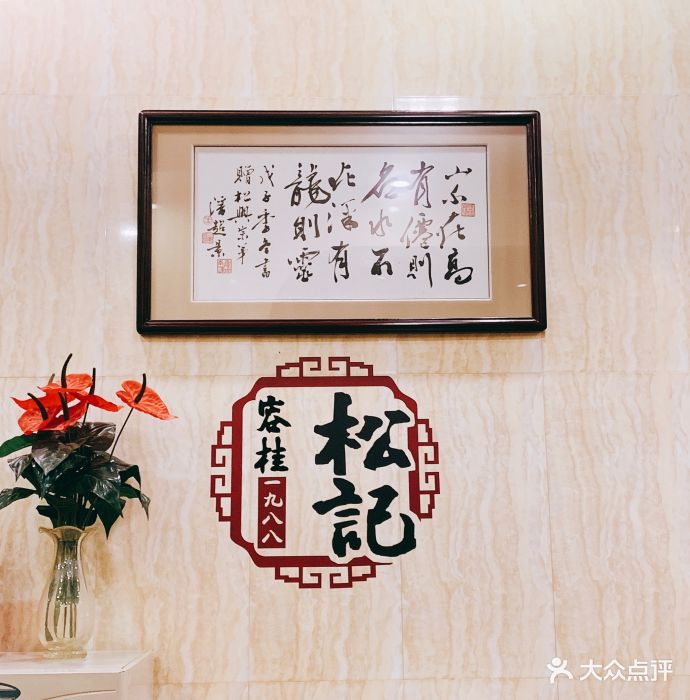 山不在高
有僊則
名水不
在深有
龍則靈
戊子季冬書
贈松興宗羊
潘越景
松記
容桂
一九八八
大众点评